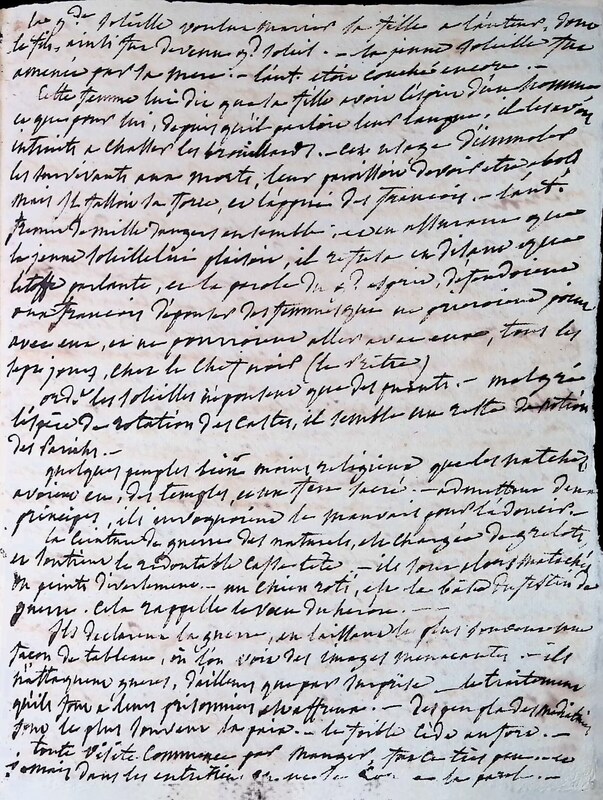 la g.de Soleille voulut marier sa fille a l'auteur, dont
le fils, ainsi fut devenu g.d Soleil. — la jeune Soleille fut
amenée par sa mere. — l'aut. etoit couché encore. —
Cette femme lui dit que sa fille avoit l'esprit d'un homme
et que pour lui, depuis qu'il parloit leur langue, il les avoit
instruits a chasser les brouillards. — Cet usage d'immoler
les survivants aux morts, leur paroissoit devoir etre aboli
mais il falloit la force, et l'appui des francois. — l'aut.
fremit de mille dangers ensemble; et en assurant que
la jeune Soleille lui plaisoit, il refusa en disant que
l'étoffe parlante, et la parole du g.d esprit, défendoient
aux francois d'épouser des femmes qui ne prieroient point
avec eux, et ne pourroient aller avec eux, tous les
sept jours, chez le Chef noir (le Prêtre)
les Soleilles n'épousent que des puants. — malgré
l'espèce de rotation des castes, il semble un reste de notion
des Pariahs. —
quelques peuples bien moins religieux que les natchez,
avoient eu, des temples, et un feu sacré. — admettant deux
principes, ils invoquoient le mauvais pour l'adoucir. —
la Ceinture de guerre des naturels, est chargée de grelots
et soutient le redoutable Casse-tête — ils sont alors matachés
ou peints diversement. — un chien roti, est la base du festin de
guerre. Cela rappelle le voeu du heron. —
Ils declarent la guerre, en laissant le plus souvent une
facon de tableau, où l'on voit des images menacantes. — ils
n'attaquent gueres, d'ailleurs que par surprise — le traitement
qu'ils font a leurs prisonniers est affreux. — Des peuplades
font le plus souvent la paix. — le foible cède au fort. —
toute visite Commence par manger, fut-ce très peu — et
jamais dans les entretiens on ne se la parole. —